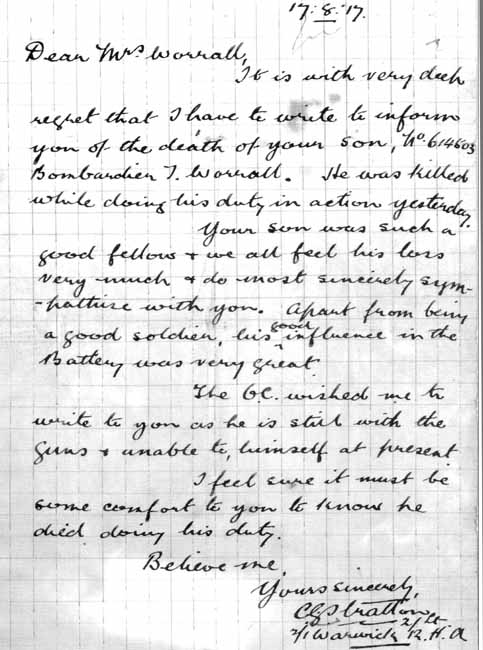 17.8.17.
Dear Mrs Worrall,
It is with very deep
regret that I have to write to inform
you of the death of your son, No 614603
Bombardier T. Worrall. He was killed
while doing his duty in action yesterday.
Your son was such a
good fellow & we all feel his loss
very much & do most sincerely sym-
-pathise with you. Apart from being
a good soldier, his good influence in the
Battery was very great.
The O.C. wished me to
write to you as he is still with the
guns & unable to, himself at present
I feel sure it must be
some comfort to you to know he
died doing his duty.
Believe me,
Yours sincerely,
Stratton
2/Lt
2/1 Warwick R.H.A